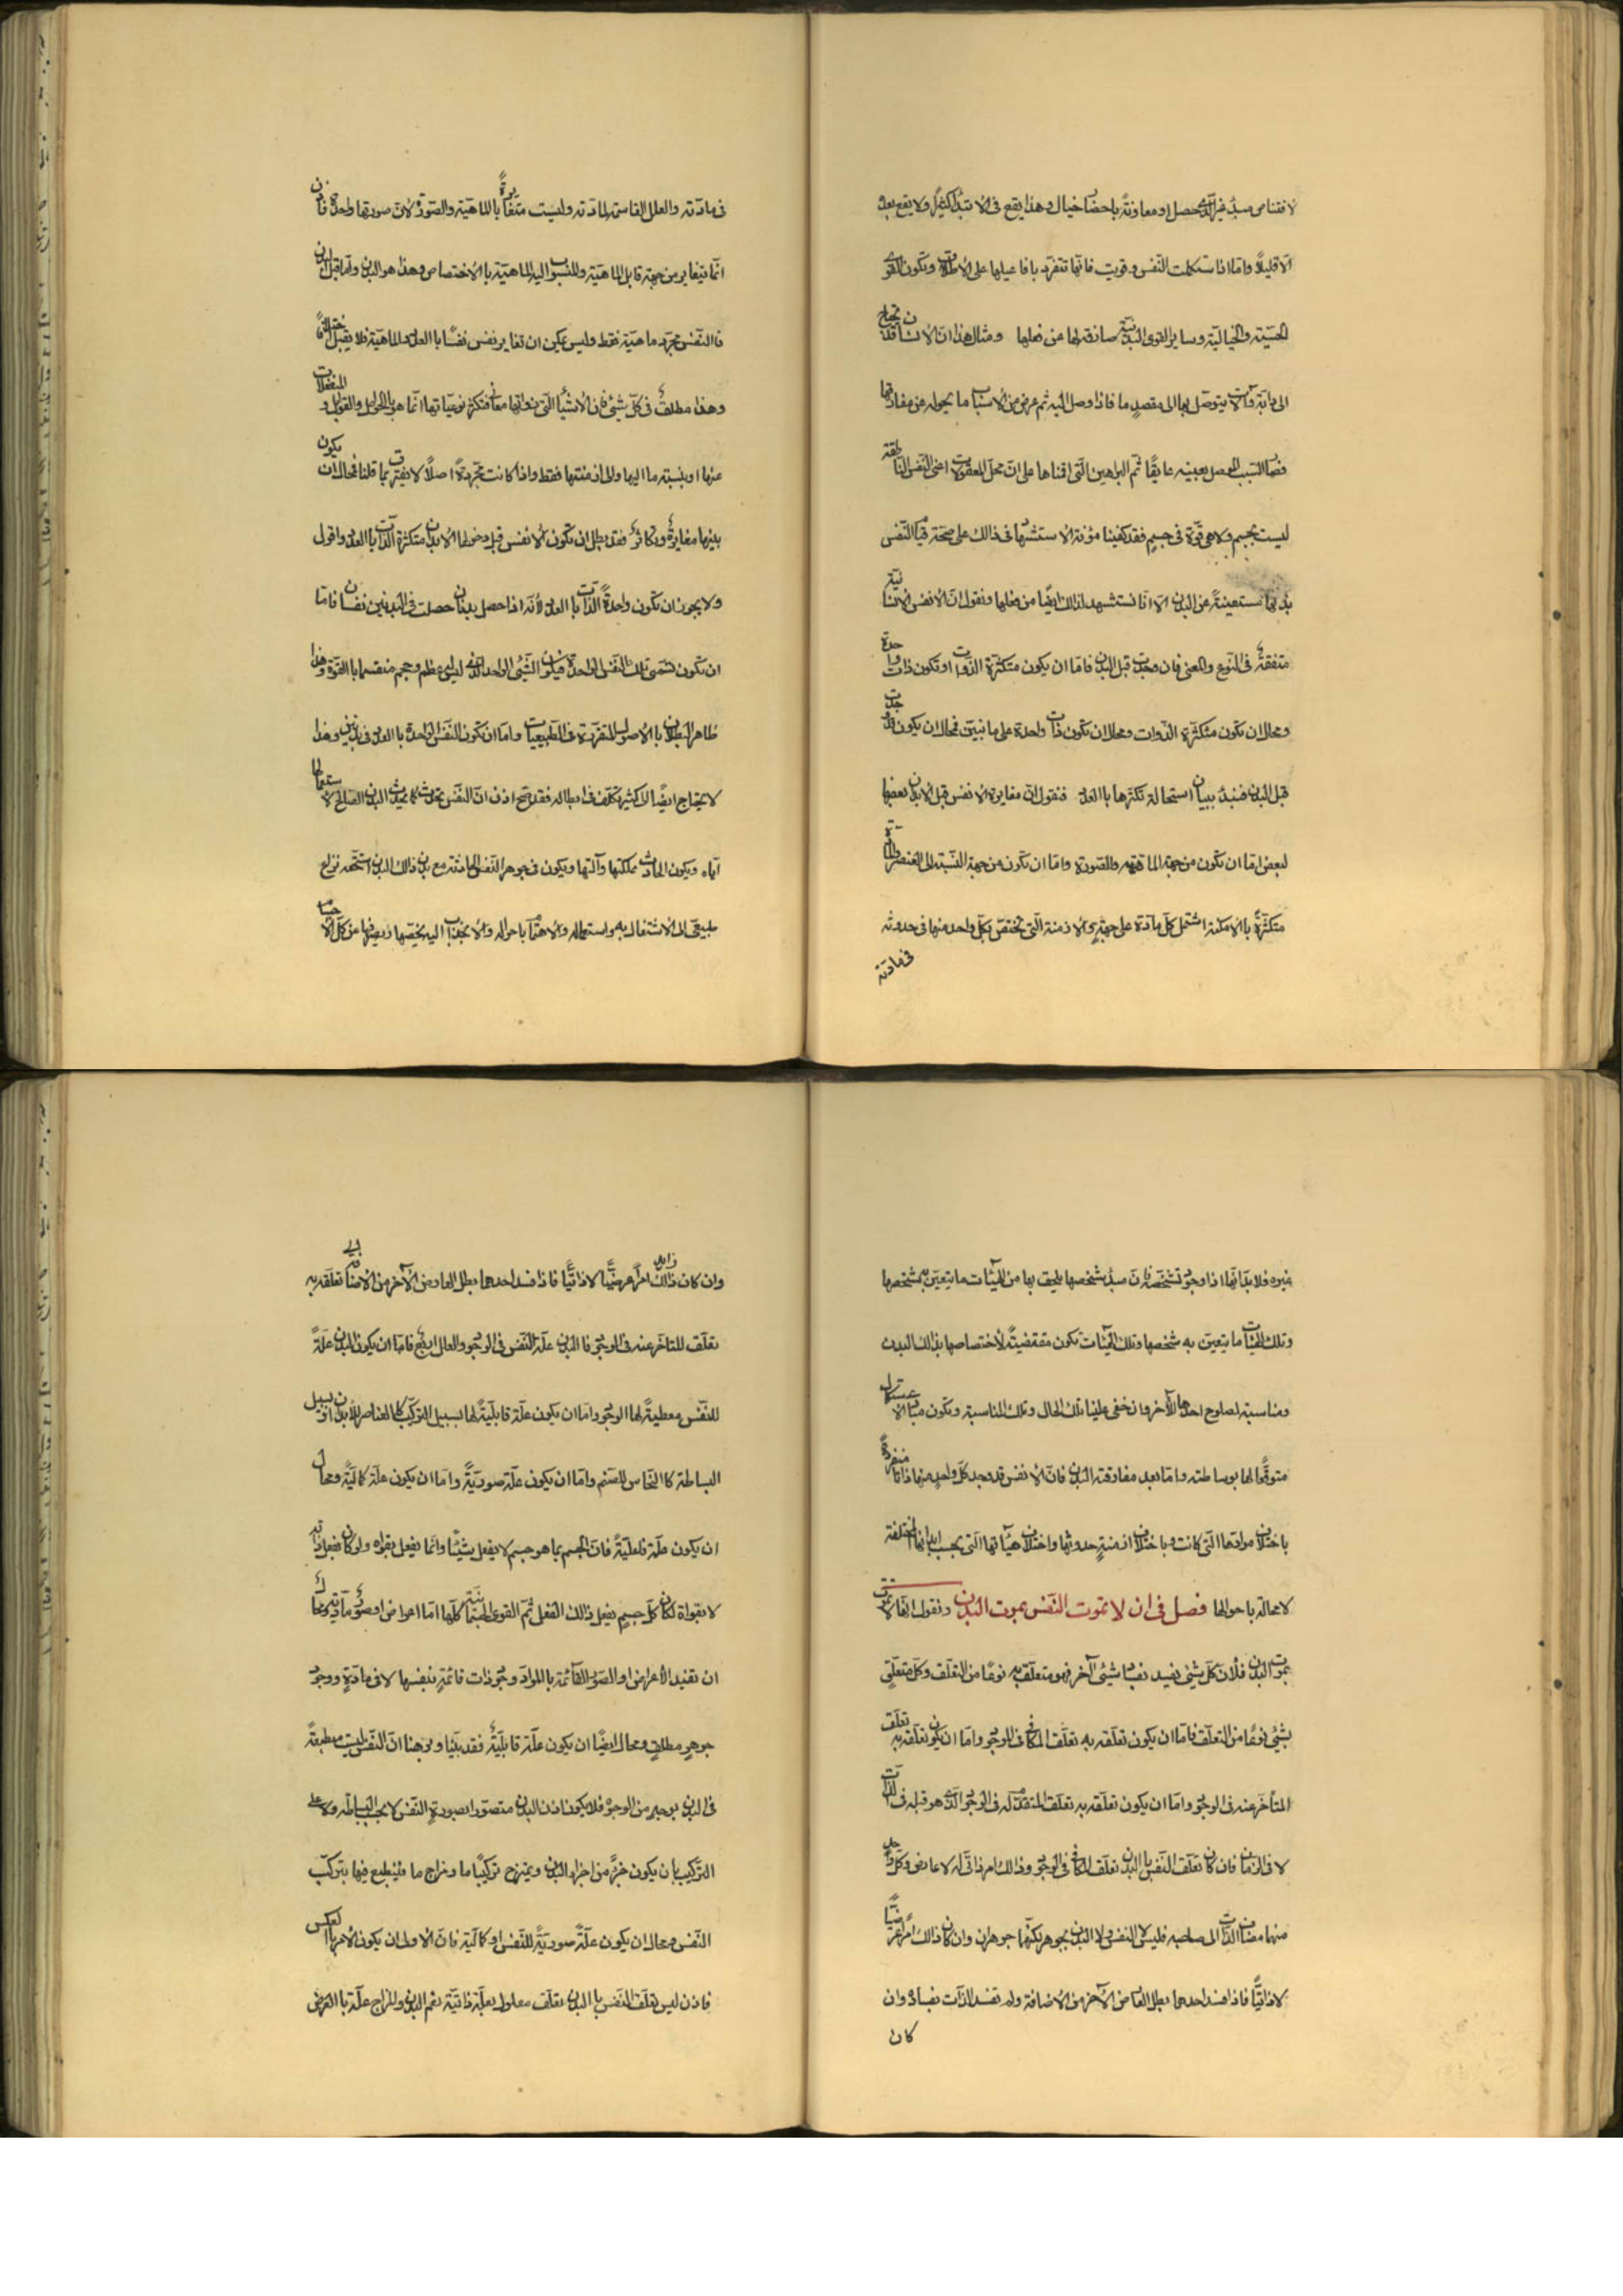 لاقتناص مبدء غير الذى حصل او معاونة باحضار خيال وهذا يقع فى الابتداء كثيرا ولا يقع بعده
الا قليلا واما اذا استكملت النفس وقويت فانها تتفرد بافاعيلها على الاطلاق وتكون القوى
الحسية والخيالية وساير القوى البدنية صارفة لها عن فعلها ومثال هذا ان الانسان قد يحتاج
الى دابة وآلات يتوصل بها الى مقصد ما فاذا وصل اليه ثم عرض من الاسباب ما يحوله عن مفارقتها
صار السبب الموصل بعينه عايقا ثم البراهين التى اقمناها على ان محل المعقولات اعنى النفس الناطقة
ليست بجسم ولا هى قوة فى جسم فقد كفينا مؤنة الاستشهاد فى ذالك على صحة قيام النفس
بذاتها مستعينة عن البدن الا انا نستشهد لذالك ايضا من فعلها ونقول ان الانفس الانسانية
متفقة فى النوع والمعنى فان وجدت قبل البدن فاما ان يكون متكثرة الذوات او تكون ذات واحدة
ومحال ان تكون متكثرة الذوات ومحال ان تكون ذات واحدة على ما نبين فمحال ان يكون قد وجدت
قبل البدن فنبدء ببيان استحالة تكثرها بالعدد فنقول ان مغايرة الانفس قبل الابدان بعضها
لبعض اما ان تكون من جهة الماهية والصورة واما ان تكون من جهة النسبة الى العنصر والمادة
متكثرة بالامكنة اشتمل كل مادة على جهة والازمنة التى تختص بكل واحد منها فى حدوثه
فى مادته
فى مادته والعلل القاسمة لمادته وليست متغايرة بالماهية والصورة لان صورتها واحدة فاذن
انما يتغاير من جهة قابل الماهية والمنسوب اليه الماهية بالاختصاص وهذا هو البدن واما قبل البدن
فالنفس مجرد ماهية فقط وليس يمكن ان تغاير نفس نفسا بالعدد والماهية فلا يقبل اختلافا
وهذا مطلق فى كل شيئ فان الاشياء التى ذواتها معان فتكثر نوعياتها انما هو بالحوامل والقوابل والمنفعلات
عنها او بنسبة ما اليها والى ازمنتها فقط واذا كانت مجردة اصلا لا يفترق بما قلنا فمحال ان يكون
بينها مغايرة وتكاثر فقد بطل ان تكون الانفس قبل دخولها الابدان متكثرة الذات بالعدد واقول
ولا يجوز ان تكون واحدة الذات بالعدد لانه اذا حصل بدنان حصلت فى البدنين نفسان فاما
ان تكون قسمى تلك النفس الواحدة فيكون الشيئ الواحد الذى ليس له عظم وحجم منقسما بالقوة وهذا
ظاهر البطلان بالاصول المتقررة فى الطبيعيات واما ان تكون النفس الواحدة بالعدد فى بدنين وهذا
لا يحتاج ايضا الى كثير تكلف فى ابطاله فقد صح اذن ان النفس تحدث كما يحدث البدن الصالح لاستعمالها
اياه ويكون الحادث مملكتها وآلتها ويكون فى جوهر النفس الحادثة مع بدن ذالك البدن استحقه نزاع
طبيعى الى الاشتغال به واستعماله والاهتمام باحواله والانجذاب اليه يخصها ويصرفها عن كل الاجسام
غيره فلا بد انها اذا وجدت متشخصة فان مبدء تشخصها يلحق بها من الهيئات ما يتعين به تشخصها
وتلك الهيئات ما يتعين به شخصها وتلك الهيئات تكون مقتضية لاختصاصها بذالك البدن
ومناسبة لصلوح احدهما للآخر وان خفى علينا تلك الحال وتلك المناسبة وتكون مبادى الاستكمال
متوقعا لها بوساطته واما بعد مفارقة البدن فان الانفس قد وجد كل واحد منها ذاتا منفردة
باختلاف موادها التى كانت وباختلاف ازمنة حدوثها واختلاف هيئاتها التى بحسب ابدانها المختلفة
لا محالة باحوالها فصل فى ان لا تموت النفس بموت البدن ونقول انها لا تموت
بموت البدن فلان كل شيئ يفسد بفساد شيئ آخر فهو متعلق به نوعا من التعلق وكل متعلق
بشيئ نوعا من التعلق فاما ان يكون تعلقه به تعلق المكافى فى الوجود واما ان يكون تعلقه به تعلق
المتأخر عنه فى الوجود واما ان يكون تعلقه به تعلق المتقدم له فى الوجود الذى هو قبله فى الذات
لا فى الزمان فان كان تعلق النفس بالبدن تعلق المكافى فى الوجود وذالك امر ذاتى له لا عارض وكل واحد
منهما مضاف الذات الى صاحبه فليس لا النفس ولا البدن بجوهر لكنهما جوهران وان كان ذالك امرا عرضيا
لا ذاتيا فاذا فسد احدهما بطل العارض الآخر من الاضافة ولم تفسد الذات بفساده وان
كان
وان كان ذالك امرا عرضيا لا ذاتيا فاذا فسد احدهما بطل العارض الآخر من الاضافة تعلقه به
تعلق المتاخر عنه فى الوجود فالبدن علة النفس فى الوجود والعلل اربع فاما ان يكون البدن علة
للنفس معطية لها الوجود واما ان يكون علة قابلية لها بسبيل التركيب كالعناصر للابدان او بسبيل
البساطة كالنحاس للصنم واما ان يكون علة صورية واما ان يكون علة كمالية ومحال
ان يكون علة فاعلية فان الجسم بما هو جسم لا يفعل شيئا وانما يفعل بقواه ولو كان يفعل بذاته
لا بقواه لكان كل جسم يفعل ذالك الفعل ثم القوى الجسمانية كلها اما اعراض او صور مادية ومحال
ان تفيد الاعراض او الصور القائمة بالمواد وجود ذات قائمة بنفسها لا فى مادة ووجود
جوهر مطلق ومحال ايضا ان يكون علة قابلية فقد بينا وبرهنا ان النفس ليست منطبعة
فى البدن بوجه من الوجوه فلا يكون اذن البدن متصورا بصورة النفس لا بحسب البساطة ولا على
التركيب بان يكون جزء من اجزاء البدن ويمتزج تركيبا ما ومزاج ما فينطبع فيها بتركب
النفس ومحال ان يكون علة صورية للنفس او كمالية فان الاولى ان يكون الامر بالعكس
فاذن ليس تعلق النفس بالبدن تعلق معلول بعلة ذاتية نعم البدن والمزاج علة بالعرض